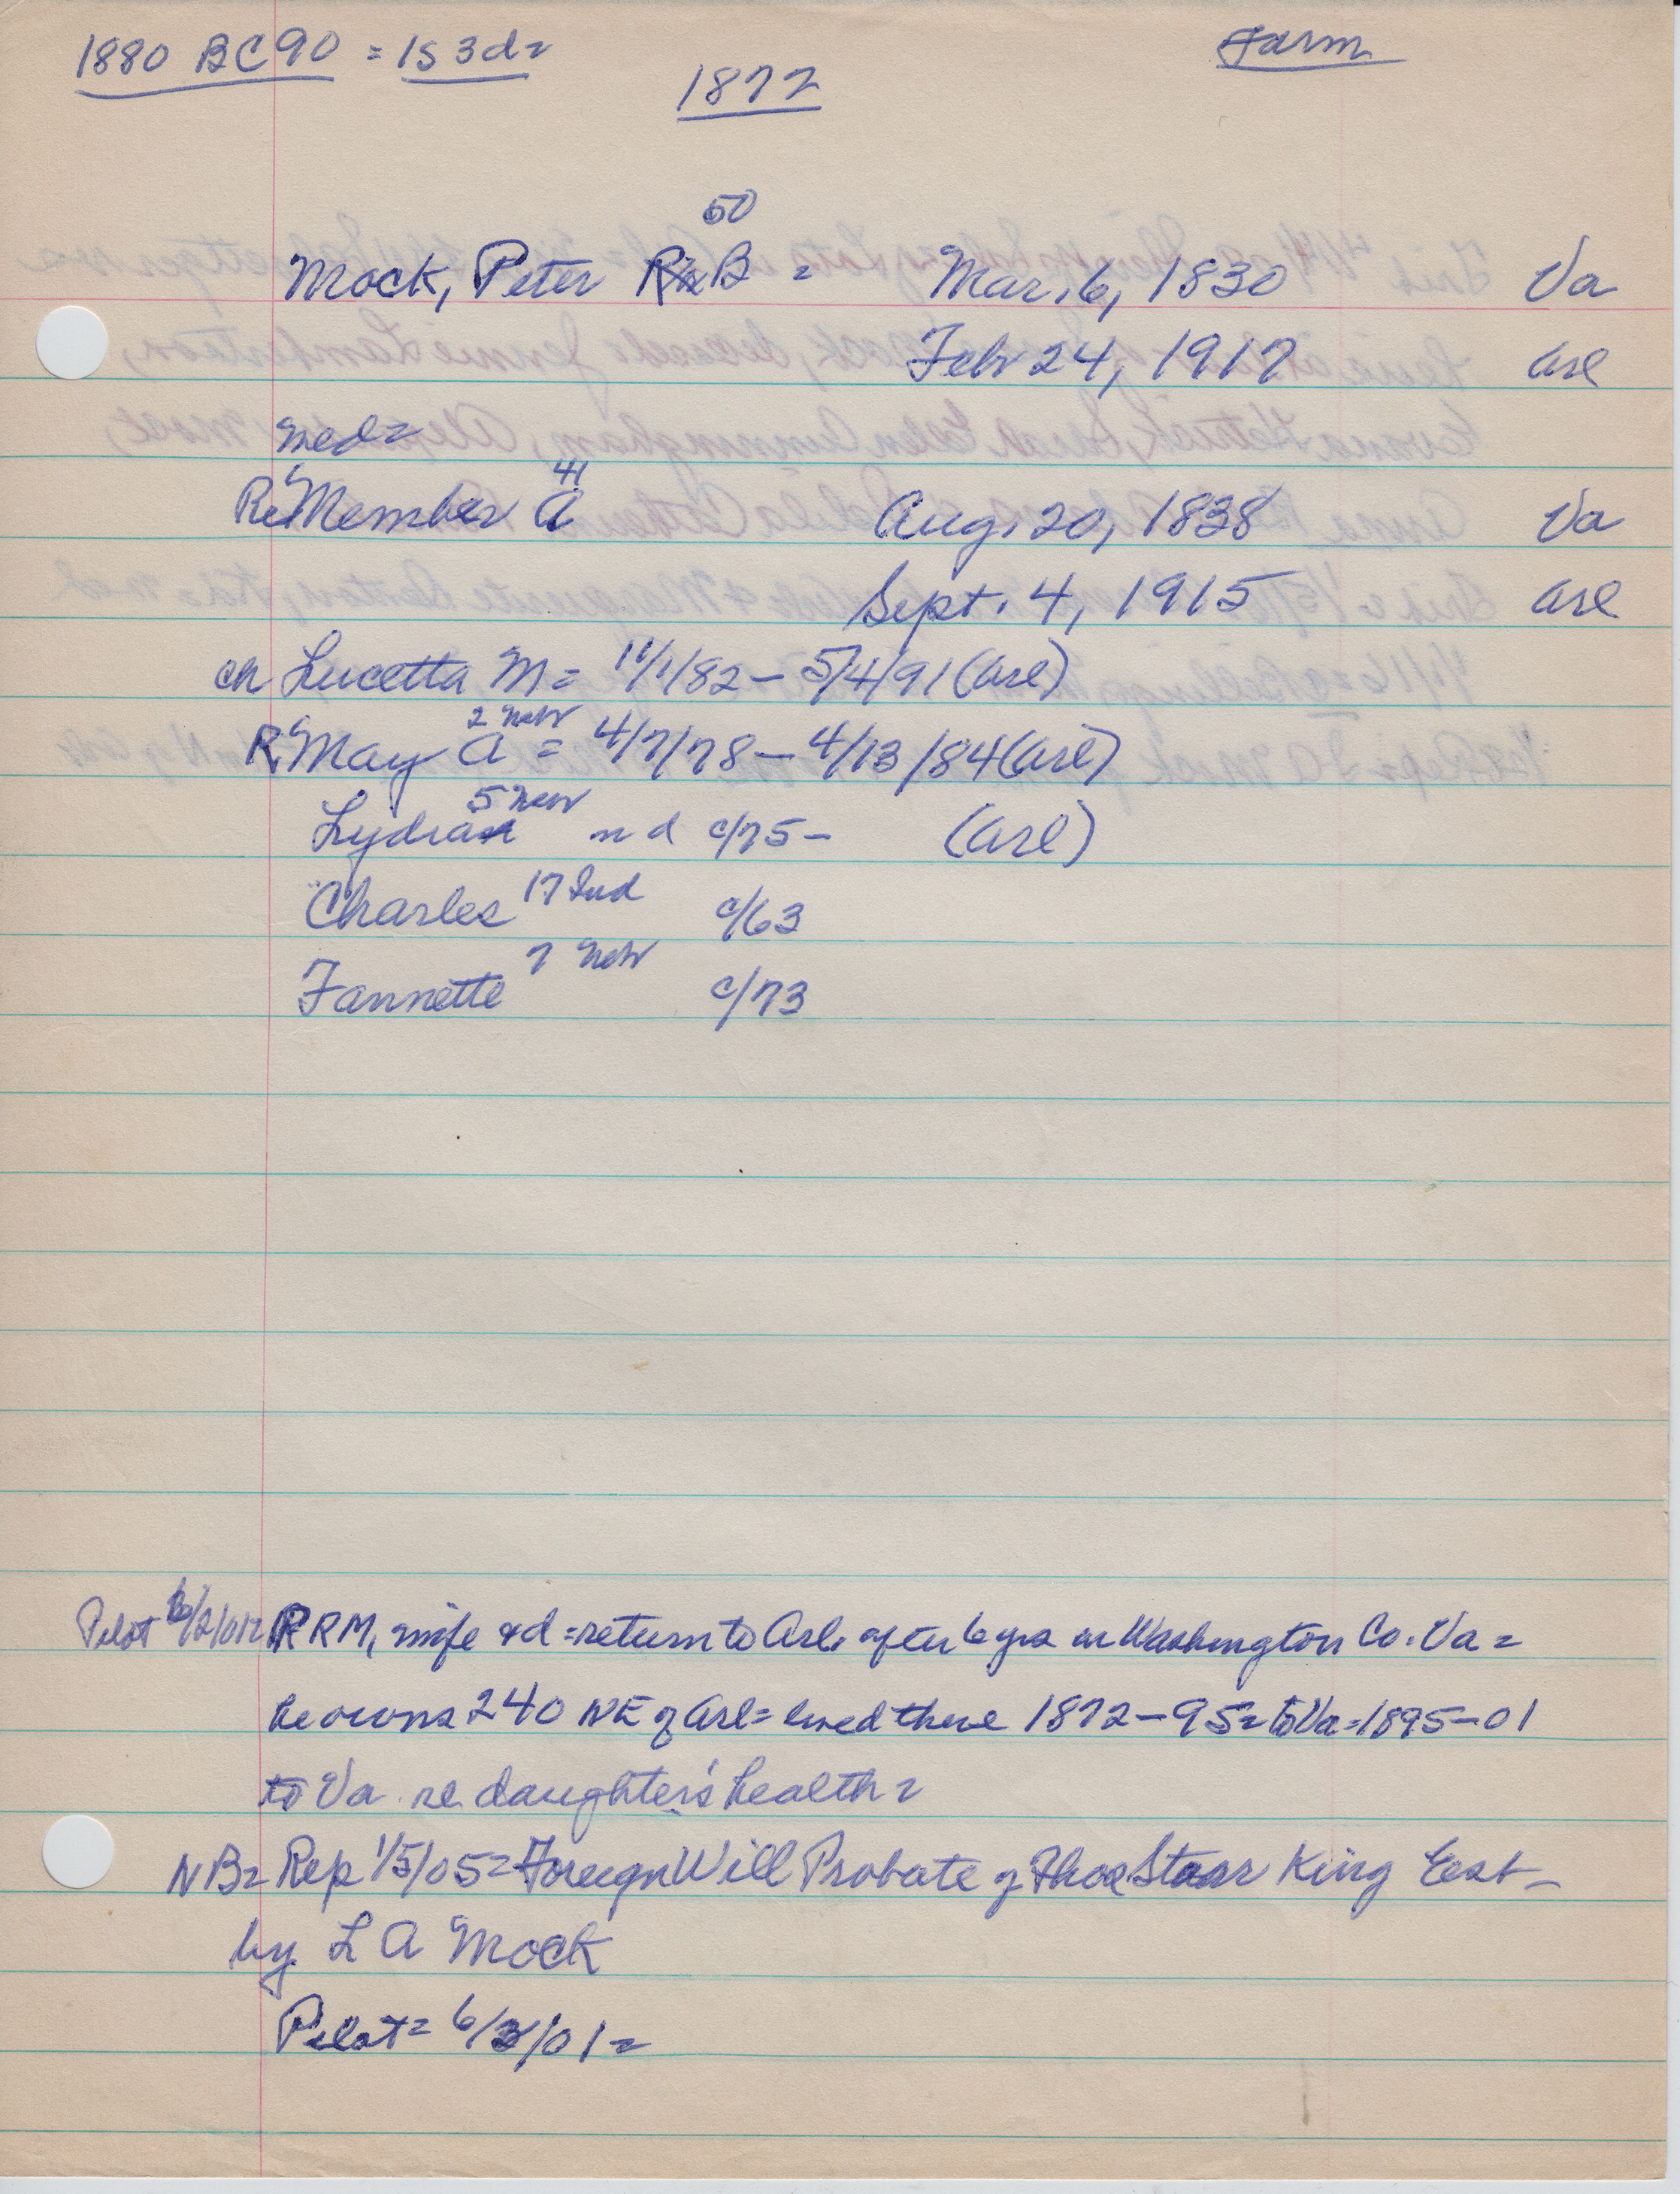 1880 BC90 = 1s 3d=
Farm
1872
50
Mock, Peter B = Mar. 6, 1830 Va
Feb 24, 1917 Arl
med=
41
Re Member A Aug. 20, 1838 Va
Sept. 4, 1915 Arl
ch Lucetta M = 11/1/82 – 5/4/91 (Arl)
2 Neb
R May A = 4/7/78 – 4/13/84 (Arl)
5 Neb
Lydia nd c/75 – (Arl)
17 Ind
Charles c/63
7 Neb
Fannette c/73
Pilot 6/2/01= RRM, wife & d = return to Arl. after 6 yrs in Washington Co. Va =
he owns 240 NE of Arl = lived there 1872–95 = to Va = 1895–01
to Va re daughter's health =
NB= Rep 1/5/05 = Foreign Will Probate of Thos Starr King East –
by L A Mock
Pilot = 6/3/01 =